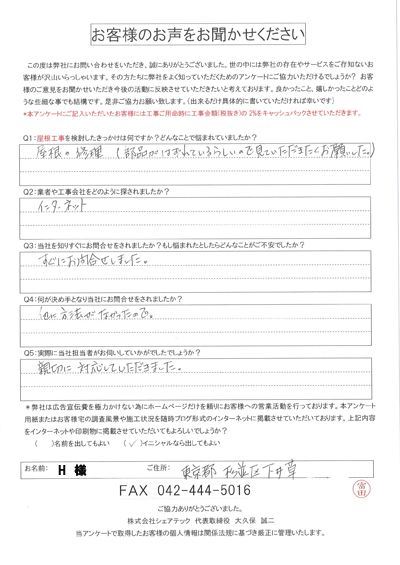 お客様のお声をお聞かせください
この度は弊社にお問い合わせをいただき、誠にありがとうございました。世の中には弊社の存在やサービスをご存知ないお
客様が沢山いらっしゃいます。その方たちに弊社をよく知っていただくためのアンケートにご協力いただけるでしょうか? お客
様のご意見をお聞かせいただき今後の活動に反映させていただきたいと考えております。良かったこと、嬉しかったことどのよ
うな些細な事でも結構です。是非ご協力お願い致します。(出来るだけ具体的に書いていただければ幸いです)
*本アンケートにご記入いただいたお客様には工事ご用命時に工事金額(税抜き)の2%をキャッシュバックさせていただきます。
Q1:屋根工事を検討したきっかけは何ですか?どんなことで悩まれていましたか?
屋根の修理(部品がはずれているらしいので見ていただきたくお願いした。)
Q2:業者や工事会社をどのように探されましたか?
インターネット
Q3:当社を知りすぐにお問合せをされましたか?もし悩まれたとしたらどんなことがご不安でしたか?
すぐにお問合せしました。
Q4:何が決め手となり当社にお問合せをされましたか?
他に方法がなかったので。
Q5:実際に当社担当者がお伺いしていかがでしたでしょうか?
親切に対応していただきました。
*弊社は広告宣伝費を極力かけない為にホームページだけを頼りにお客様への営業活動を行っております。本アンケート
用紙またはお客様宅の調査風景や施工状況を随時ブログ形式のインターネットに掲載させていただいております。上記内容
をインターネットや印刷物に掲載させていただいてもよろしいでしょうか?
( )名前を出してもよい (✓)イニシャルなら出してもよい
お名前: H 様 ご住所: 東京都 杉並区下井草
富田
FAX 042-444-5016
ご協力ありがとうございました。
株式会社シェアテック 代表取締役 大久保 誠二
当アンケートで取得したお客様の個人情報は関係法規に基づき厳正に管理いたします。